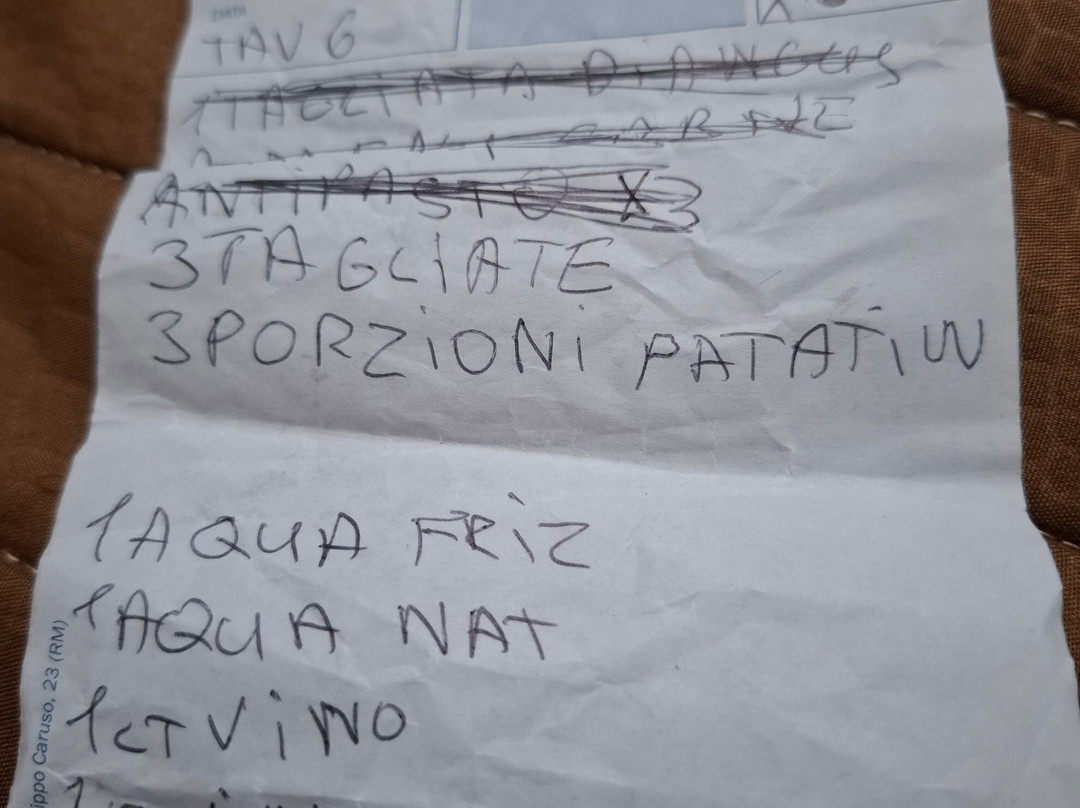 TAV 6
1 TAGLIATA D'ANGUS
CARNE
ANTIPASTO X3
3 TAGLIATE
3 PORZIONI PATATIN
1 AQUA FRIZ
1 AQUA NAT
1 LT VINO
ippo Caruso, 23 (RM)